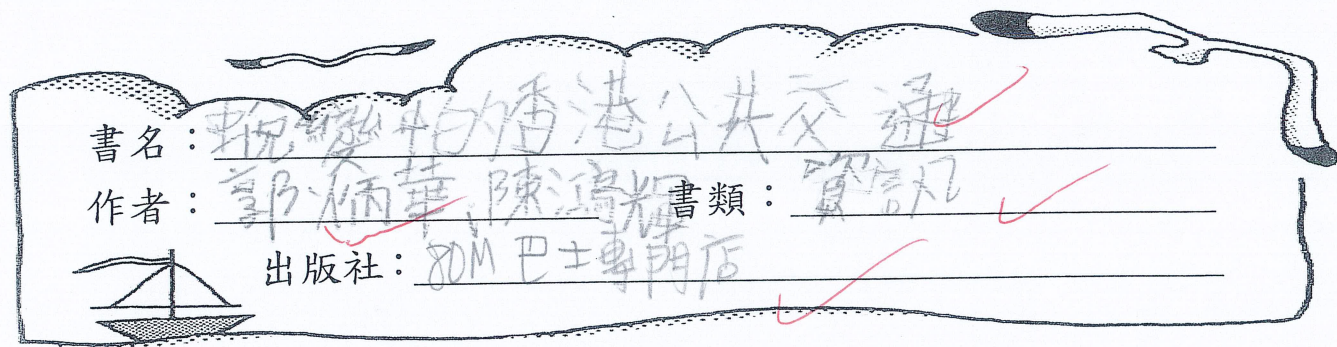 書名：蛻變中的香港公共交通
作者：郭炳華、陳鴻輝 書類：資訊
出版社：80M 巴士專門店